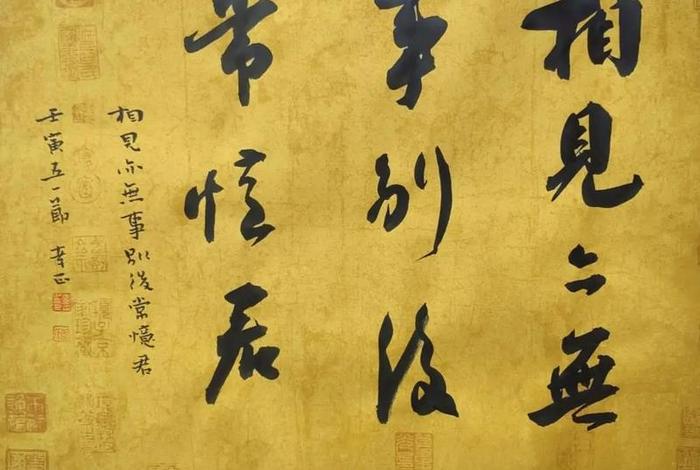 相見亦無
事別後
常憶君
相見亦無事別後常憶君
壬寅五一節 幸正